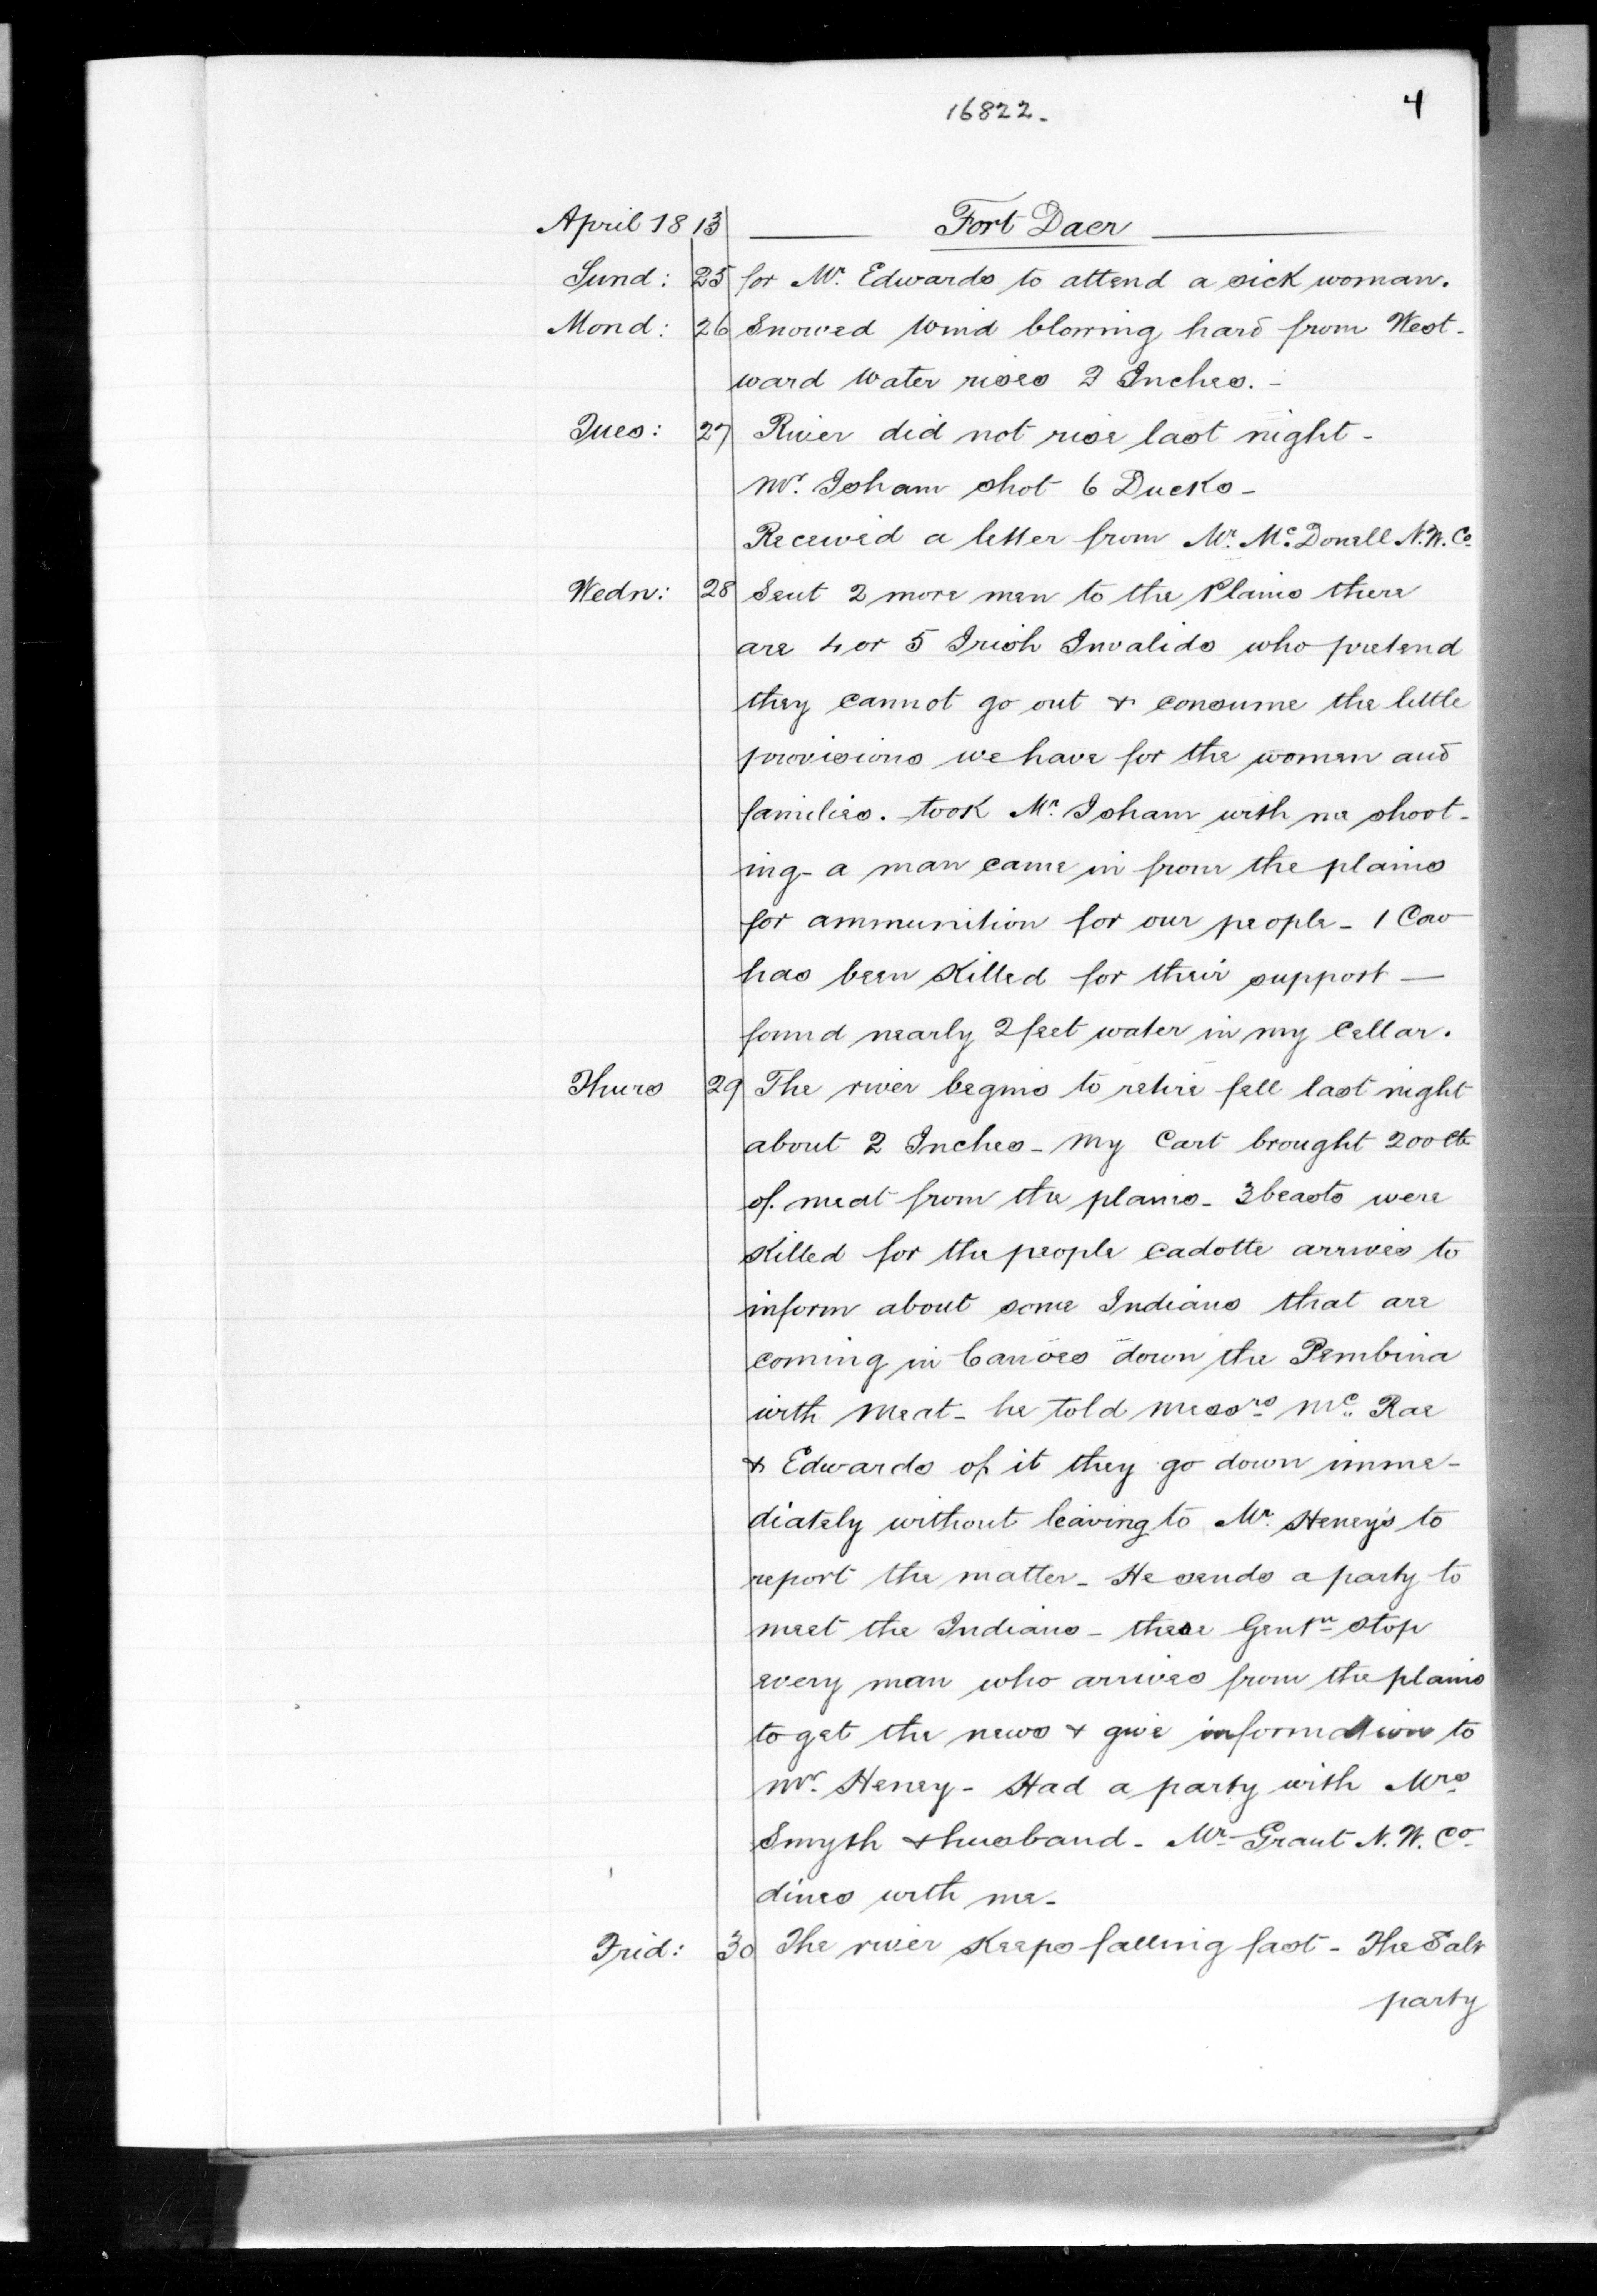 16822.
4
April 1813 Fort Daer
Sund: 25 for Mr. Edwards to attend a sick woman.
Mond: 26 Snowed Wind blowing hard from West-
ward Water rises 3 Inches. -
Tues: 27 River did not rise last night -
Mr. Isham shot 6 Ducks -
Received a letter from Mr. Mc. Donell N.W. Co
Wedn: 28 Sent 2 more men to the Plains there
are 4 or 5 Irish Invalids who pretend
they cannot go out & consume the little
provisions we have for the women and
families. - took Mr. Isham with me shoot-
ing - a man came in from the plains
for ammunition for our people - 1 Cow
has been Killed for their support —
found nearly 2 feet water in my Cellar.
Thurs 29 The river begins to retire fell last night
about 2 Inches - My Cart brought 200 lb
of meat from the plains - 3 beasts were
Killed for the people Cadotte arrives to
inform about some Indians that are
coming in Canoes down the Pembina
with Meat - he told Messrs Mc. Rae
& Edwards of it they go down imme-
diately without leaving to Mr. Heney's to
report the matter - He sends a party to
meet the Indians - these Gentn stop
every man who arrives from the plains
to get the news & give information to
Mr. Heney - Had a party with Mrs
Smyth & husband - Mr. Grant N.W. Co
dines with me -
Frid: 30 The river Keeps falling fast - The Salt
party